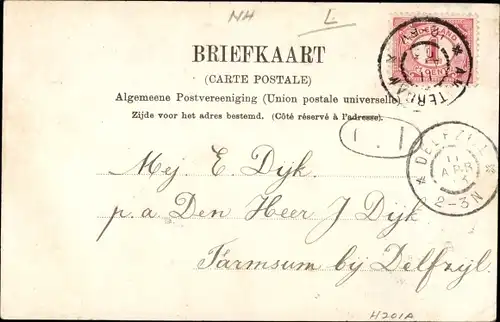 NH L
BRIEFKAART
(CARTE POSTALE)
Algemeene Postvereeniging (Union postale universelle)
Zijde voor het adres bestemd. (Côté réservé à l'adresse).
NEDERLAND
1
CENT
DELFZIJL
11
APR
2-3N
Mej. E. Dijk.
p.a. Den Heer J Dijk
Farmsum bij Delfzijl.
H201A